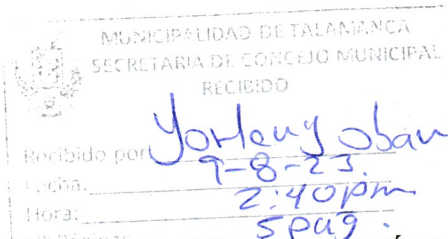 MUNICIPALIDAD DE TALAMANCA
SECRETARIA DE CONCEJO MUNICIPAL
RECIBIDO
Recibido por Yorleny Oban
Fecha: 9-8-23.
Hora: 2:40pm
5 pag.